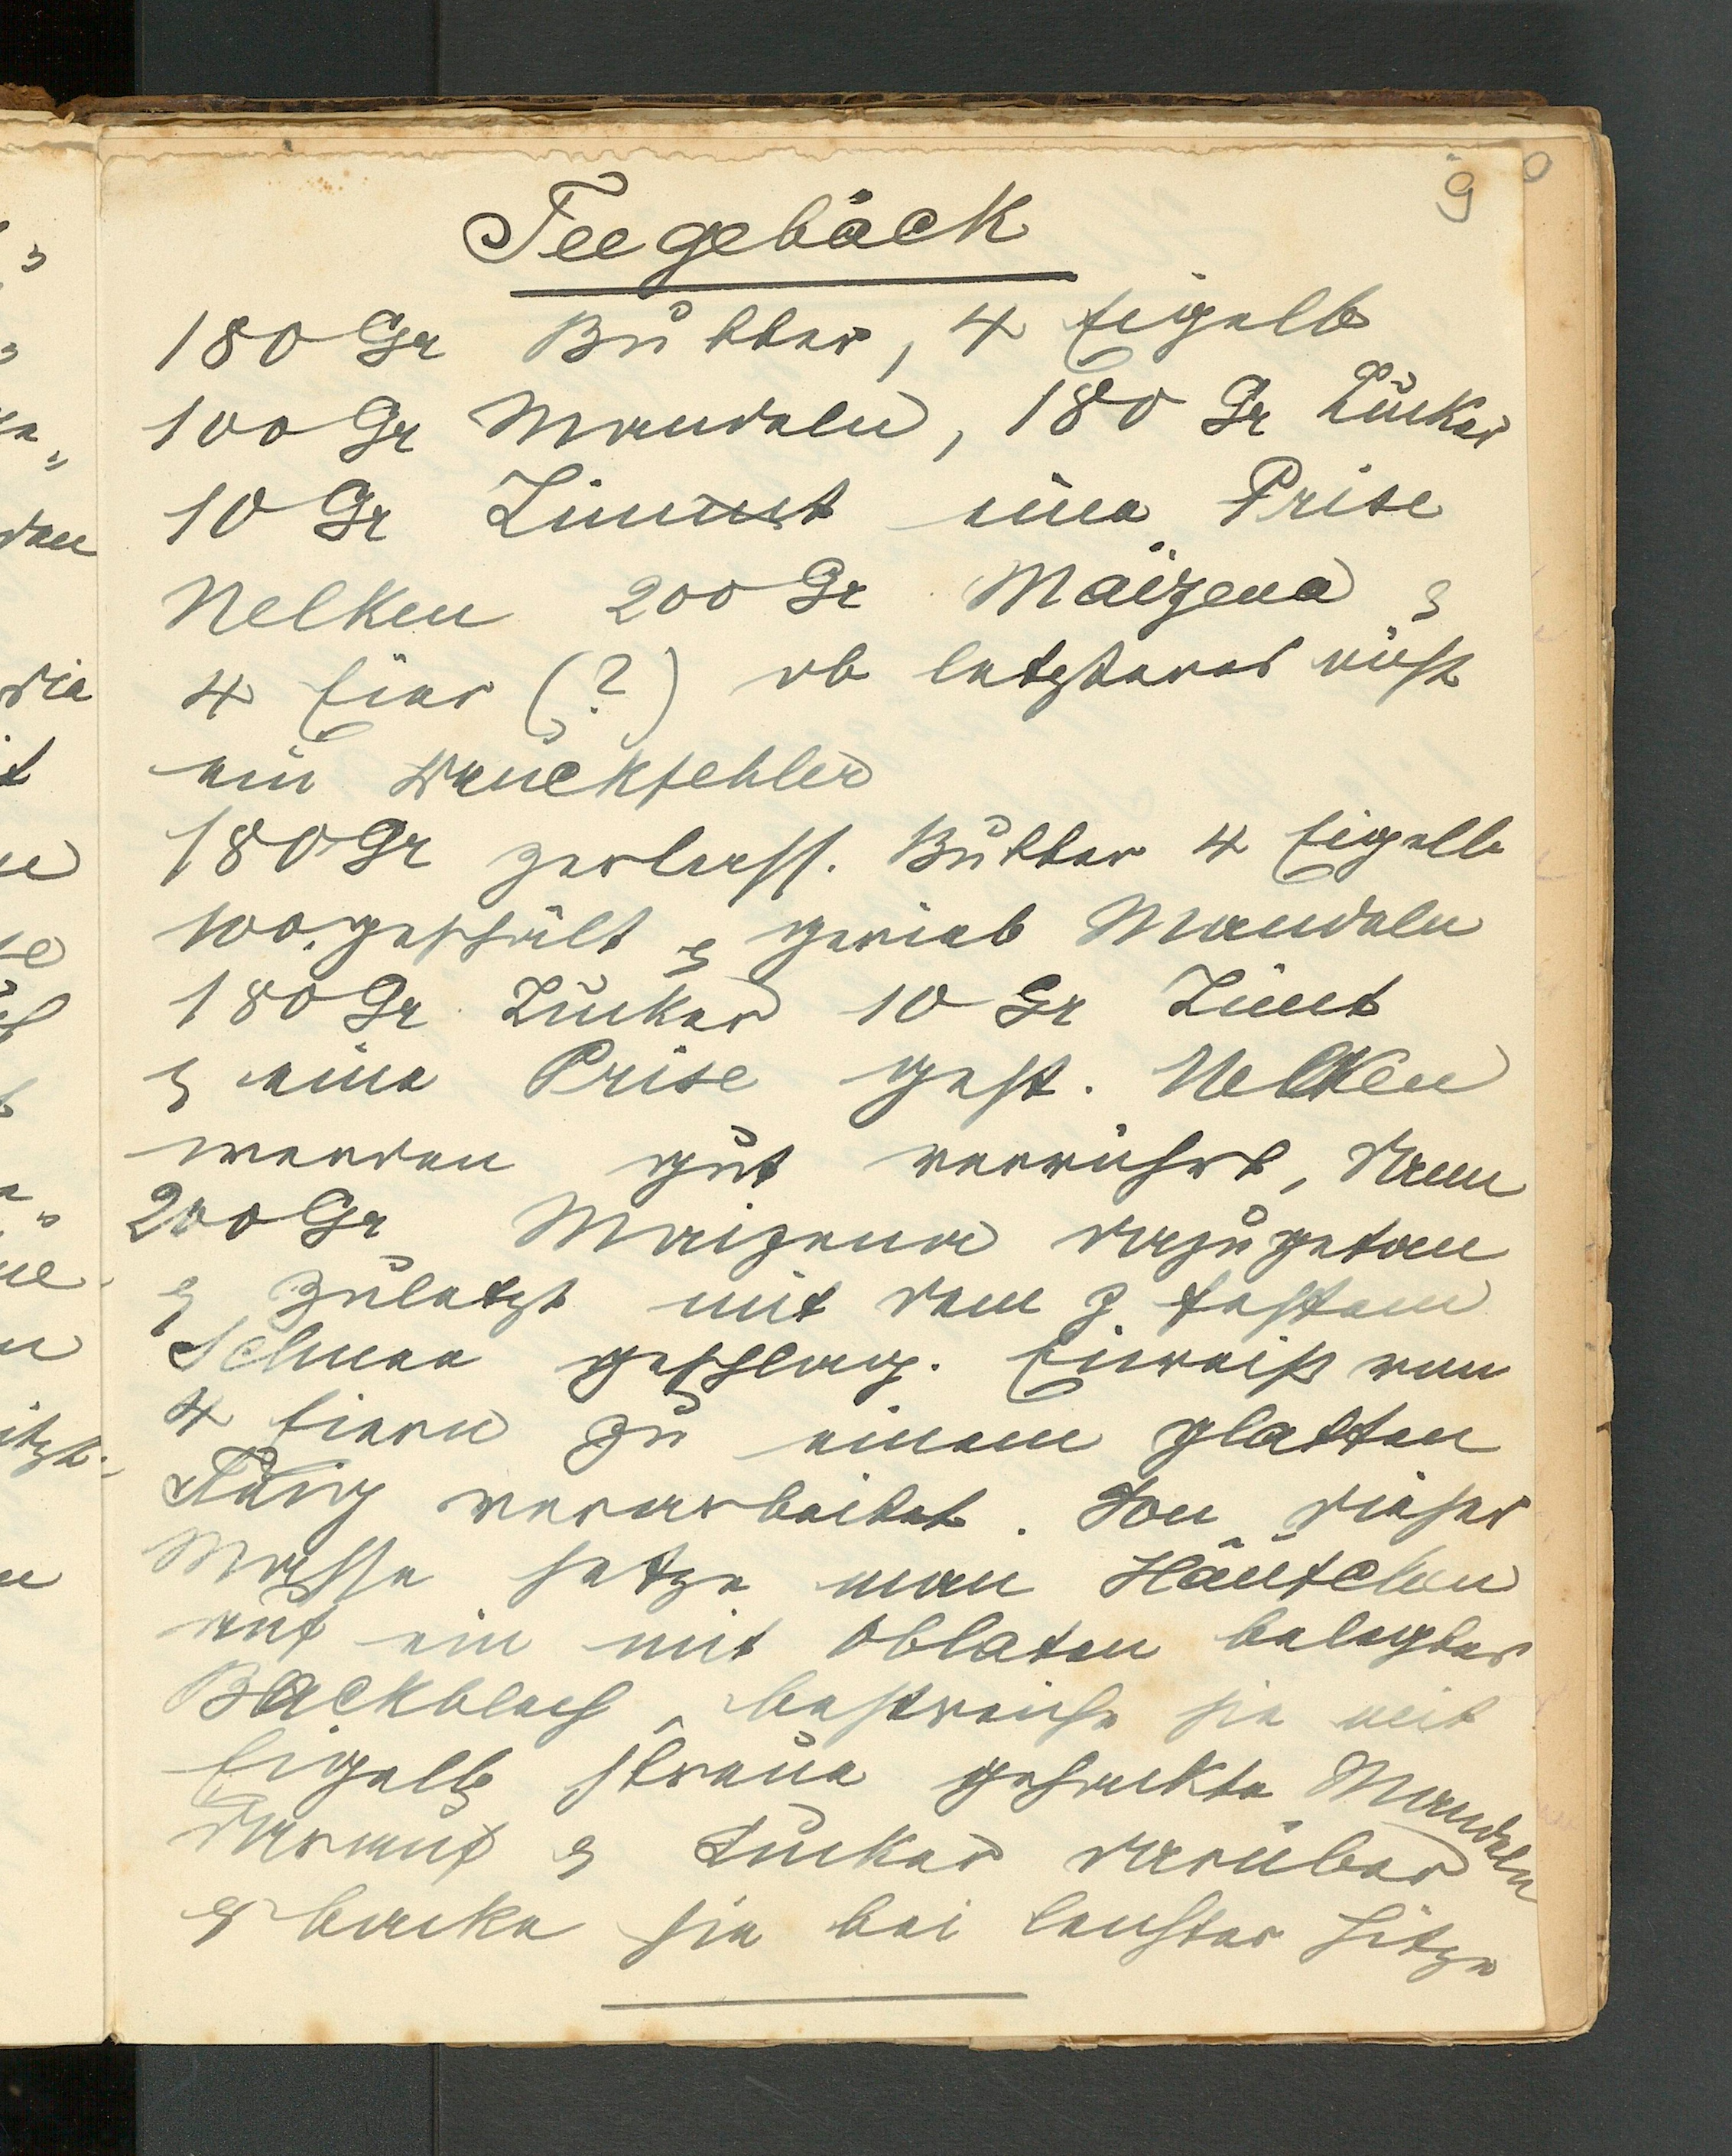 9
Teegebäck
180 Gr Butter, 4 Eigelb
100 Gr Mandeln, 180 Gr Zucker
10 Gr Zimmt eine Prise
Nelken 200 Gr Maizena &
4 Eier (?) ob letzteres nicht
ein Druckfehler
180 Gr zerlass. Butter 4 Eigelb
100. geschält & gerieb Mandeln
180 Gr Zucker 10 Gr Zimt
& eine Prise gest. Nelken
werden gut verrührt, dann
200 Gr Maizena dazugetan
& zuletzt mit dem z festem
Schnee geschlag. Eiweiß von
4 Eiern zu einem glatten
Teig verarbeitet. Von dieser
Masse setze man Häufchen
auf ein mit Oblaten belegtes
Backblech, bestreiche sie mit
Eigelb streue gehackte Mandeln
darauf & Zucker darüber
& backe sie bei leichter Hitze